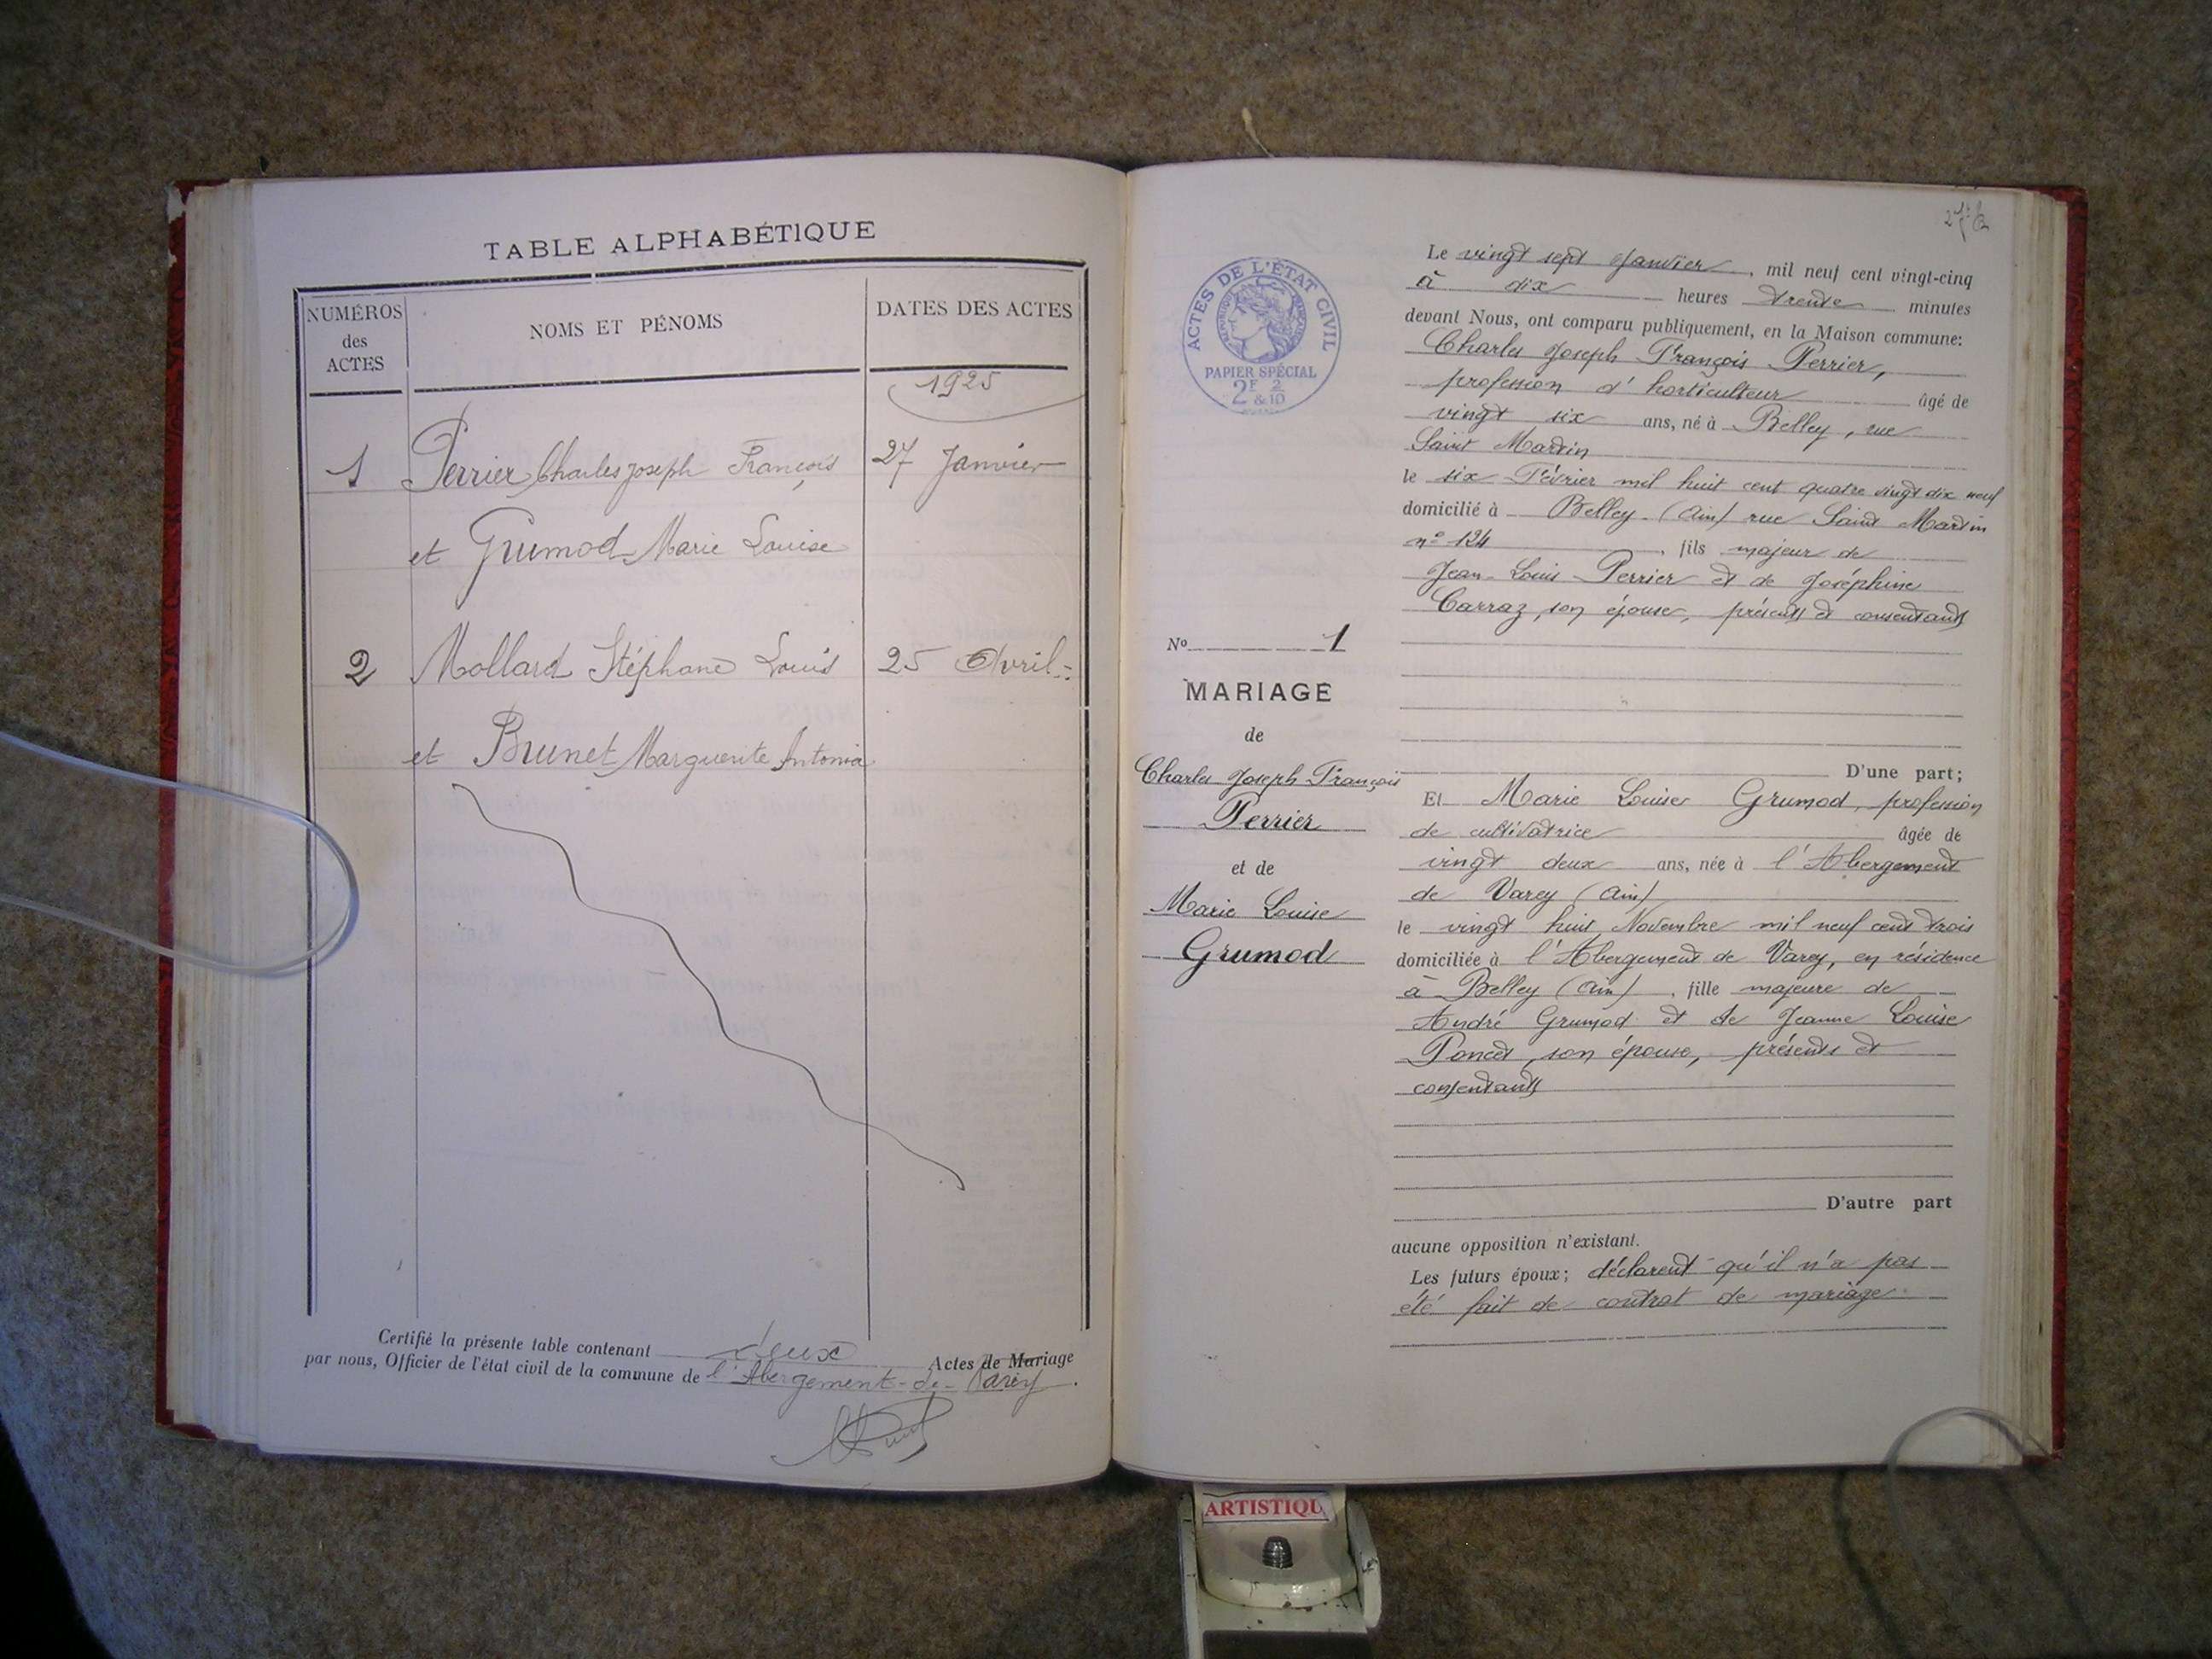 TABLE ALPHABÉTIQUE
NUMÉROS
des
ACTES
NOMS ET PÉNOMS
DATES DES ACTES
1925
1 Perrier Charles Joseph François 27 Janvier
et Grumod Marie Louise
2 Mollard Stéphane Louis 25 Avril
et Brunet Marguerite Antonia
Certifié la présente table contenant deux Actes de Mariage
par nous, Officier de l'état civil de la commune de l'Abergement-de-Varey.
ACTES DE L'ÉTAT CIVIL
PAPIER SPÉCIAL
2F 2
& 10
No 1
MARIAGE
de
Charles Joseph François
Perrier
et de
Marie Louise
Grumod
Le vingt sept Janvier, mil neuf cent vingt-cinq
à dix heures trente minutes
devant Nous, ont comparu publiquement, en la Maison commune:
Charles Joseph François Perrier,
profession d'horticulteur âgé de
vingt six ans, né à Belley, rue
Saint Martin
le six Février mil huit cent quatre vingt dix neuf
domicilié à Belley (Ain) rue Saint Martin
n° 124, fils majeur de
Jean-Louis Perrier et de Joséphine
Carraz, son épouse, présents et consentants
D'une part;
Et Marie Louise Grumod, profession
de cultivatrice âgée de
vingt deux ans, née à l'Abergement
de Varey (Ain)
le vingt huit Novembre mil neuf cent trois
domiciliée à l'Abergement de Varey, en résidence
à Belley (Ain), fille majeure de
André Grumod et de Jeanne Louise
Poncet, son épouse, présents et
consentants
D'autre part
aucune opposition n'existant.
Les futurs époux; déclarent qu'il n'a pas
été fait de contrat de mariage
ARTISTIQU